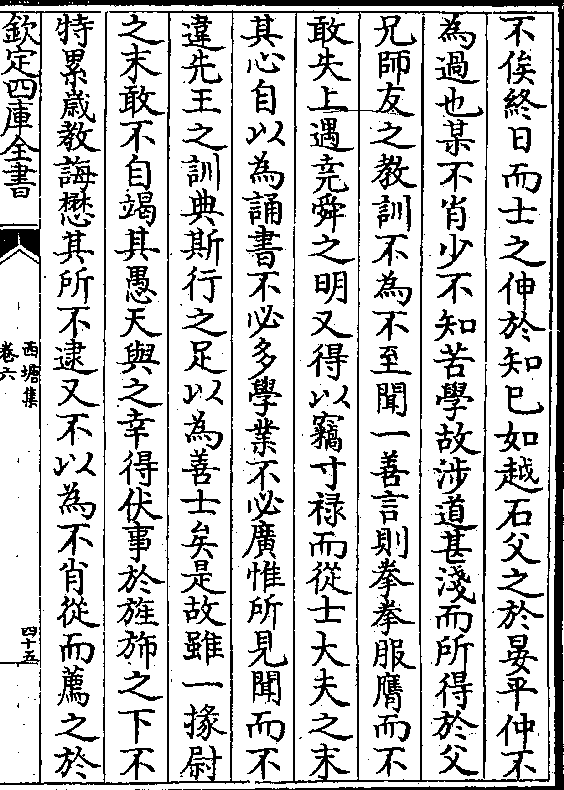 不俟終日而士之伸於知已如越石父之於晏平仲不
為過也某不肖少不知苦學故涉道甚淺而所得於父
兄師友之教訓不為不至聞一善言則拳拳服膺而不
敢失上遇堯舜之明又得以竊寸祿而從士大夫之末
其心自以為誦書不必多學業不必廣惟所見聞而不
違先王之訓典斯行之足以為善士矣是故雖一掾尉
之末敢不自竭其愚天與之幸得伏事於旌斾之下不
特累歲教誨懋其所不逮又不以為不肖從而薦之於
欽定四庫全書
西塘集
卷六
四十五